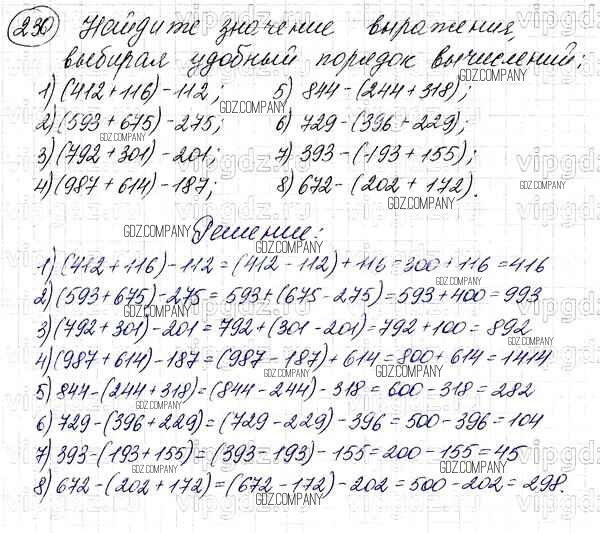 230 Найдите значение выражения,
выбирая удобный порядок вычислений;
1) (412+116)-112; 5) 844-(244+318);
GDZ.COMPANY GDZ.COMPANY
2) (593+675)-275; 6) 729-(396+229);
GDZ.COMPANY
3) (792+301)-201; 7) 393-(193+155);
GDZ.COMPANY
4) (987+614)-187; 8) 672-(202+172).
GDZ.COMPANY
Решение:
GDZ.COMPANY GDZ.COMPANY
1) (412+116)-112=(412-112)+116=300+116=416
2) (593+675)-275=593+(675-275)=593+400=993
GDZ.COMPANY GDZ.COMPANY
3) (792+301)-201=792+(301-201)=792+100=892
4) (987+614)-187=(987-187)+614=800+614=1414
GDZ.COMPANY GDZ.COMPANY
5) 844-(244+318)=(844-244)-318=600-318=282
GDZ.COMPANY
6) 729-(396+229)=(729-229)-396=500-396=104
7) 393-(193+155)=(393-193)-155=200-155=45
GDZ.COMPANY GDZ.COMPANY
8) 672-(202+172)=(672-172)-202=500-202=298.
GDZ.COMPANY
vipgdz.ru